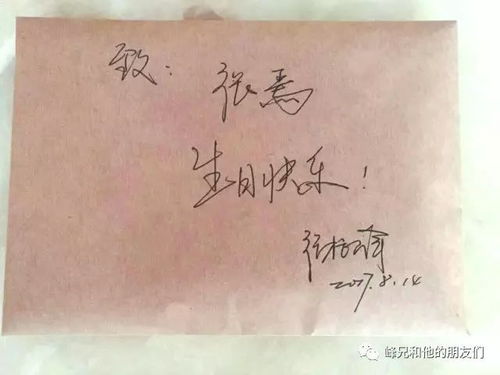 致：
张焉
生日快乐！
2017.8.14
峰兄和他的朋友们